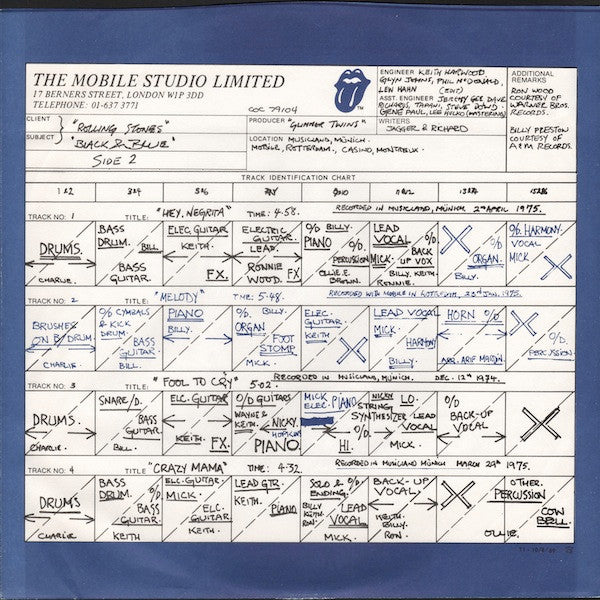 THE MOBILE STUDIO LIMITED
17 BERNERS STREET, LONDON W1P 3DD
TELEPHONE: 01-637 3771
COC 79104
ENGINEER KEITH HARWOOD
GLYN JOHNS, PHIL McDONALD,
LEW HAHN (EDIT)
ASST. ENGINEER JEREMY GEE DAVE
RICHARDS, STEVE DOWD
GENE PAUL, LEE HULKO (MASTERING)
ADDITIONAL
REMARKS
RON WOOD
COURTESY OF
WARNER BROS.
RECORDS.
BILLY PRESTON
COURTESY OF
A&M RECORDS.
CLIENT "ROLLING STONES"
SUBJECT "BLACK & BLUE"
SIDE 2
PRODUCER "GLIMMER TWINS"
WRITERS
JAGGER & RICHARD
LOCATION MUSICLAND, MUNICH.
MOBILE, ROTTERDAM, CASINO, MONTREUX.
TRACK IDENTIFICATION CHART
1&2 3&4 5&6 7&8 9&10 11&12 13&14 15&16
TRACK NO: 1 TITLE: "HEY, NEGRITA" TIME: 4.58. RECORDED IN MUSICLAND, MUNICH 2nd APRIL 1975.
DRUMS.
CHARLIE.
BASS
DRUM.
BILL.
BASS
GUITAR.
ELEC. GUITAR
KEITH.
FX.
ELECTRIC
GUITAR
LEAD.
RONNIE
WOOD.
FX
O/D BILLY
PIANO
O/D
PERCUSSION
OLLIE E.
BROWN.
LEAD
VOCAL
MICK.
O/D.
BACK
UP VOX
BILLY. KEITH.
RONNIE.
O/D.
ORGAN.
BILLY.
O/D. HARMONY
VOCAL
MICK.
TRACK NO: 2 TITLE: "MELODY" TIME: 5.48. RECORDED WITH MOBILE IN ROTTERDAM, 23rd JAN. 1975.
BRUSHES
ON B/DRUM
CHARLIE.
O/D CYMBALS
& KICK
DRUM.
BASS
GUITAR.
BILL.
PIANO
BILLY.
O/D.
ORGAN
BILLY.
FOOT
STOMP
MICK.
ELEC.
GUITAR.
KEITH
LEAD VOCAL
MICK.
HARMONY
BILLY.
HORN O/D
ARR. ARIF MARDIN.
O/D.
PERCUSSION
TRACK NO: 3 TITLE: "FOOL TO CRY" 5.02. RECORDED IN MUSICLAND, MUNICH. DEC. 12th 1974.
DRUMS.
CHARLIE.
SNARE/D.
BASS
GUITAR.
BILL.
ELC. GUITAR
KEITH.
FX.
O/D GUITARS
WAYNE &
KEITH.
NICKY.
HOPKINS
PIANO
MICK
ELEC. PIANO
O/D.
HI.
NICKY LO.
STRING
SYNTHESIZER
O/D.
LEAD
VOCAL
MICK.
O/D.
BACK-UP
VOCAL
TRACK NO: 4 TITLE "CRAZY MAMA" TIME: 4.32. RECORDED IN MUSICLAND MUNICH MARCH 29th 1975.
DRUMS
CHARLIE
BASS
DRUM.
O/D.
BASS
GUITAR.
KEITH
ELC. GUITAR
MICK.
ELC.
GUITAR.
KEITH.
LEAD GTR.
KEITH.
PIANO
SOLO & O/D.
ENDING.
BILLY
KEITH.
RON.
LEAD
VOCAL
MICK.
BACK-UP
VOCAL.
KEITH.
BILLY.
RON.
OLLIE.
OTHER.
PERCUSSION
COW
BELL.